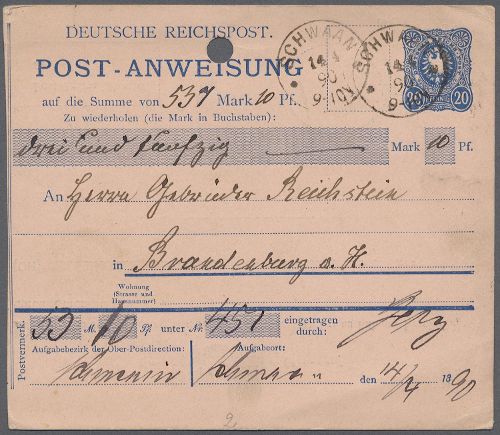 DEUTSCHE REICHSPOST.
POST-ANWEISUNG
SCHWAAN
14 4
90
9-10V
SCHWAAN
14 4
90
9-10V
20 20
auf die Summe von 53 Mark 10 Pf.
Zu wiederholen (die Mark in Buchstaben):
drei und fünfzig Mark 10 Pf.
An Herrn Gebrüder Reichstein
in Brandenburg a. H.
Wohnung
(Strasse und
Hausnummer)
Postvermerk.
53 M. 10 Pf. unter Nr. 451 eingetragen durch:
Aufgabebezirk der Ober-Postdirection: Aufgabeort:
Schwerin Schwaan den 14/4 1890
2